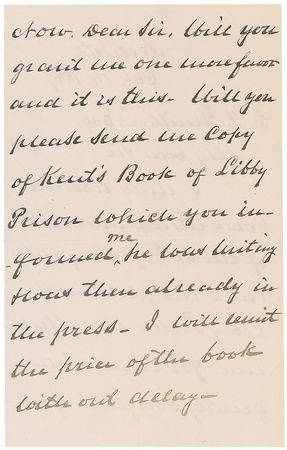 Now, Dear Sir, Will you
grant me one more favor
and it is this - Will you
please send me Copy
of Kent's Book of Libby
Prison which you in-
-formed me he was writing
& was then already in
the press - I will remit
the price of the book
with out delay -